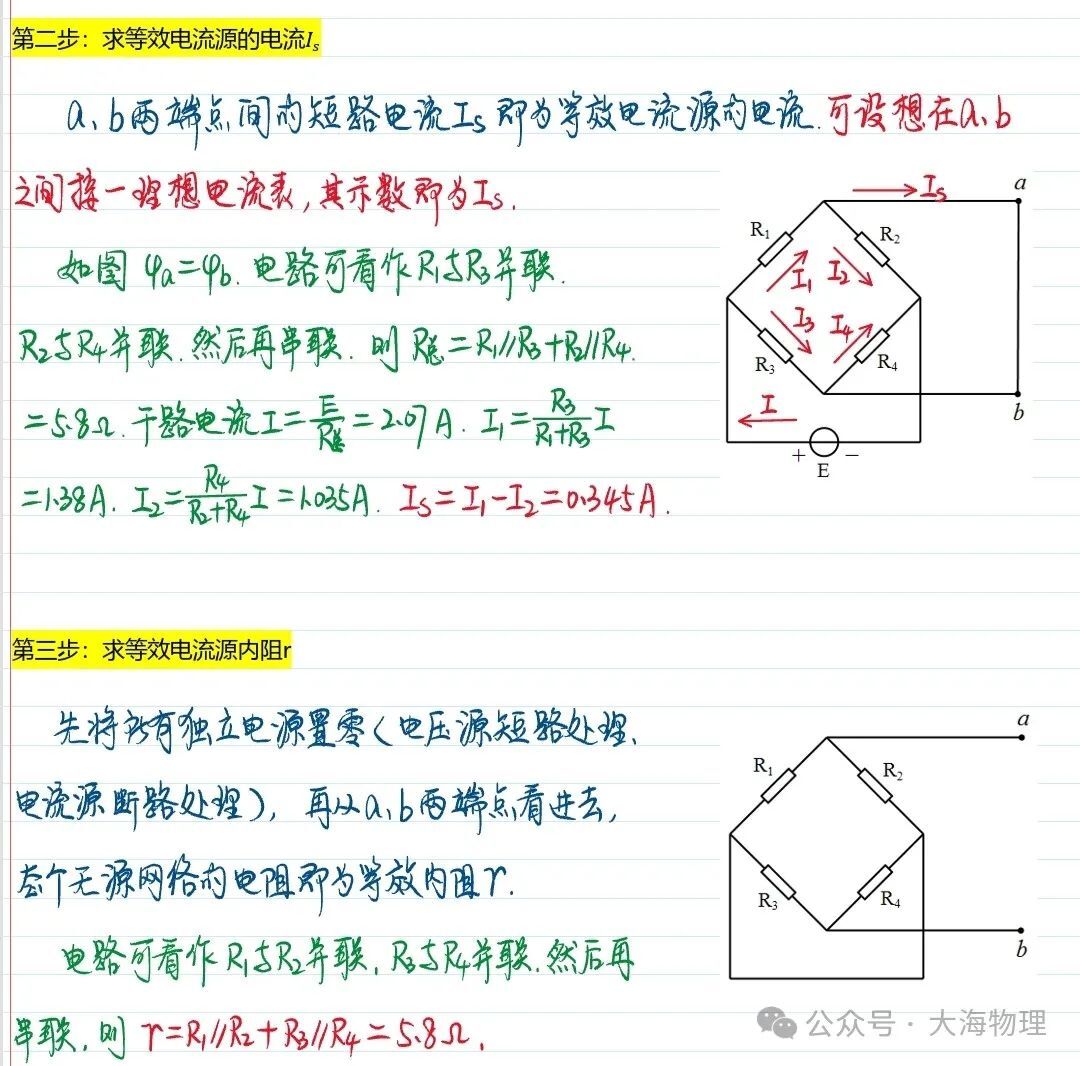 第二步：求等效电流源的电流Is
a、b两端点间的短路电流Is即为等效电流源的电流.可设想在a、b
之间接一理想电流表，其示数即为Is.
如图 φa=φb. 电路可看作R1与R3并联.
R2与R4并联.然后再串联. 则 R总=R1//R3+R2//R4.
=5.8Ω. 干路电流I=E/R总=2.07A. I1=R3/(R1+R3) I
=1.38A. I2=R4/(R2+R4) I=1.035A. Is=I1-I2=0.345A.
Is
a
R1
R2
I1
I2
I3
I4
R3
R4
I
b
+
−
E
第三步：求等效电流源内阻r
先将所有独立电源置零(电压源短路处理、
电流源断路处理)，再从a、b两端点看进去，
整个无源网络的电阻即为等效内阻r.
电路可看作R1与R2并联，R3与R4并联.然后再
串联，则 r=R1//R2+R3//R4=5.8Ω.
a
R1
R2
R3
R4
b
公众号·大海物理